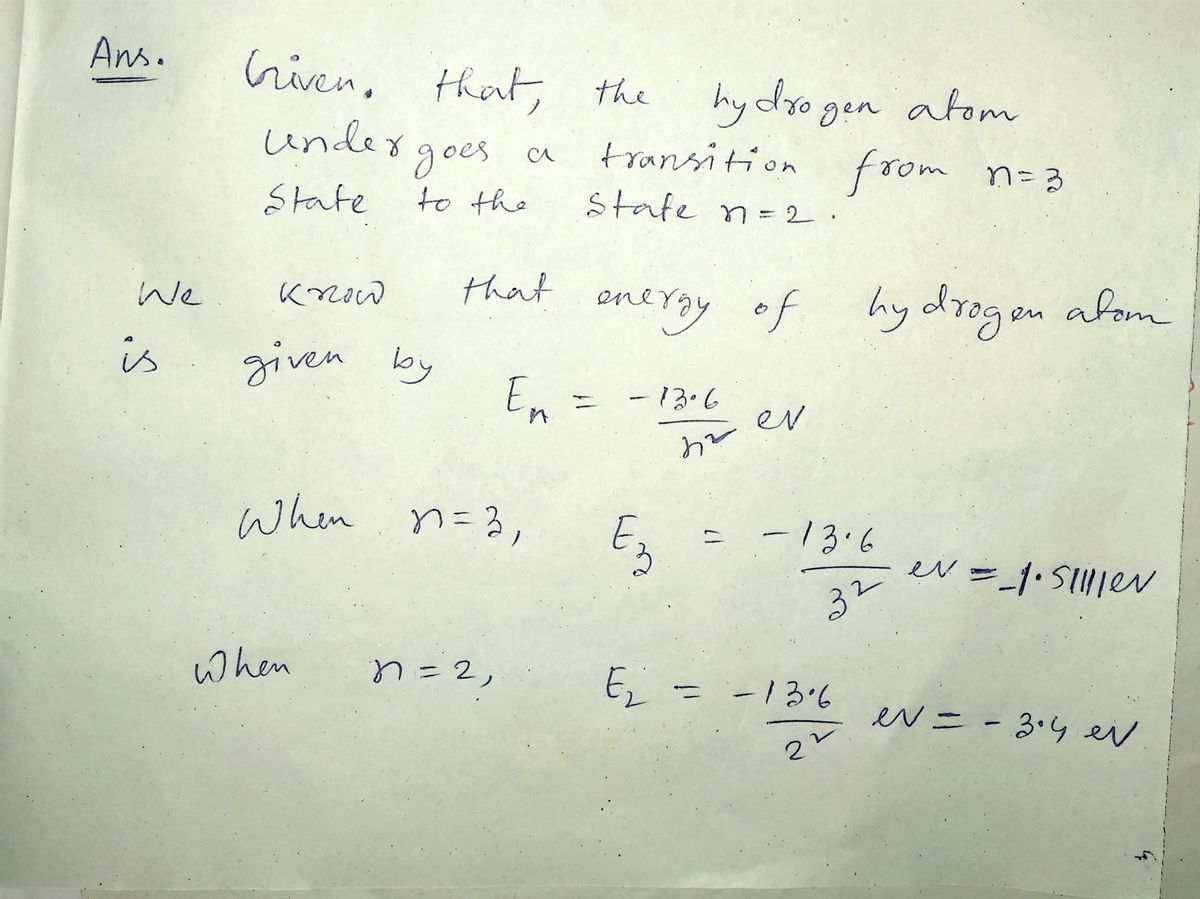 Ans. Given. that, the hydrogen atom
undergoes a transition from n=3
State to the state n=2.
We know that energy of hydrogen atom
is given by
En = -13.6/n² ev
When n=3, E3 = -13.6/3² ev = -1.51111ev
When n=2, E2 = -13.6/2² ev = -3.4 ev